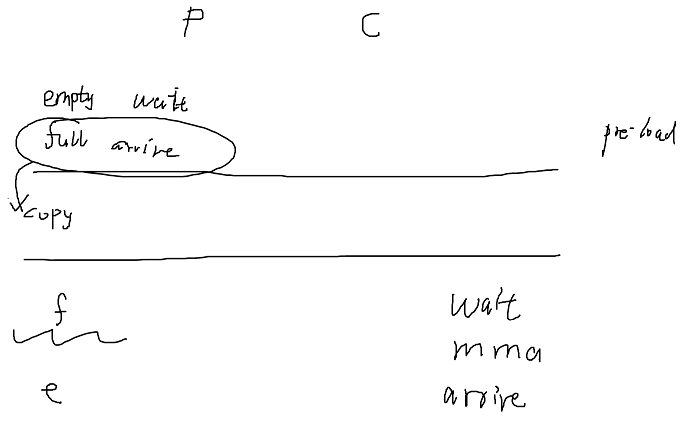 P C
empty wait
full arrive
pre-load
copy
f wait
mma
e arrive